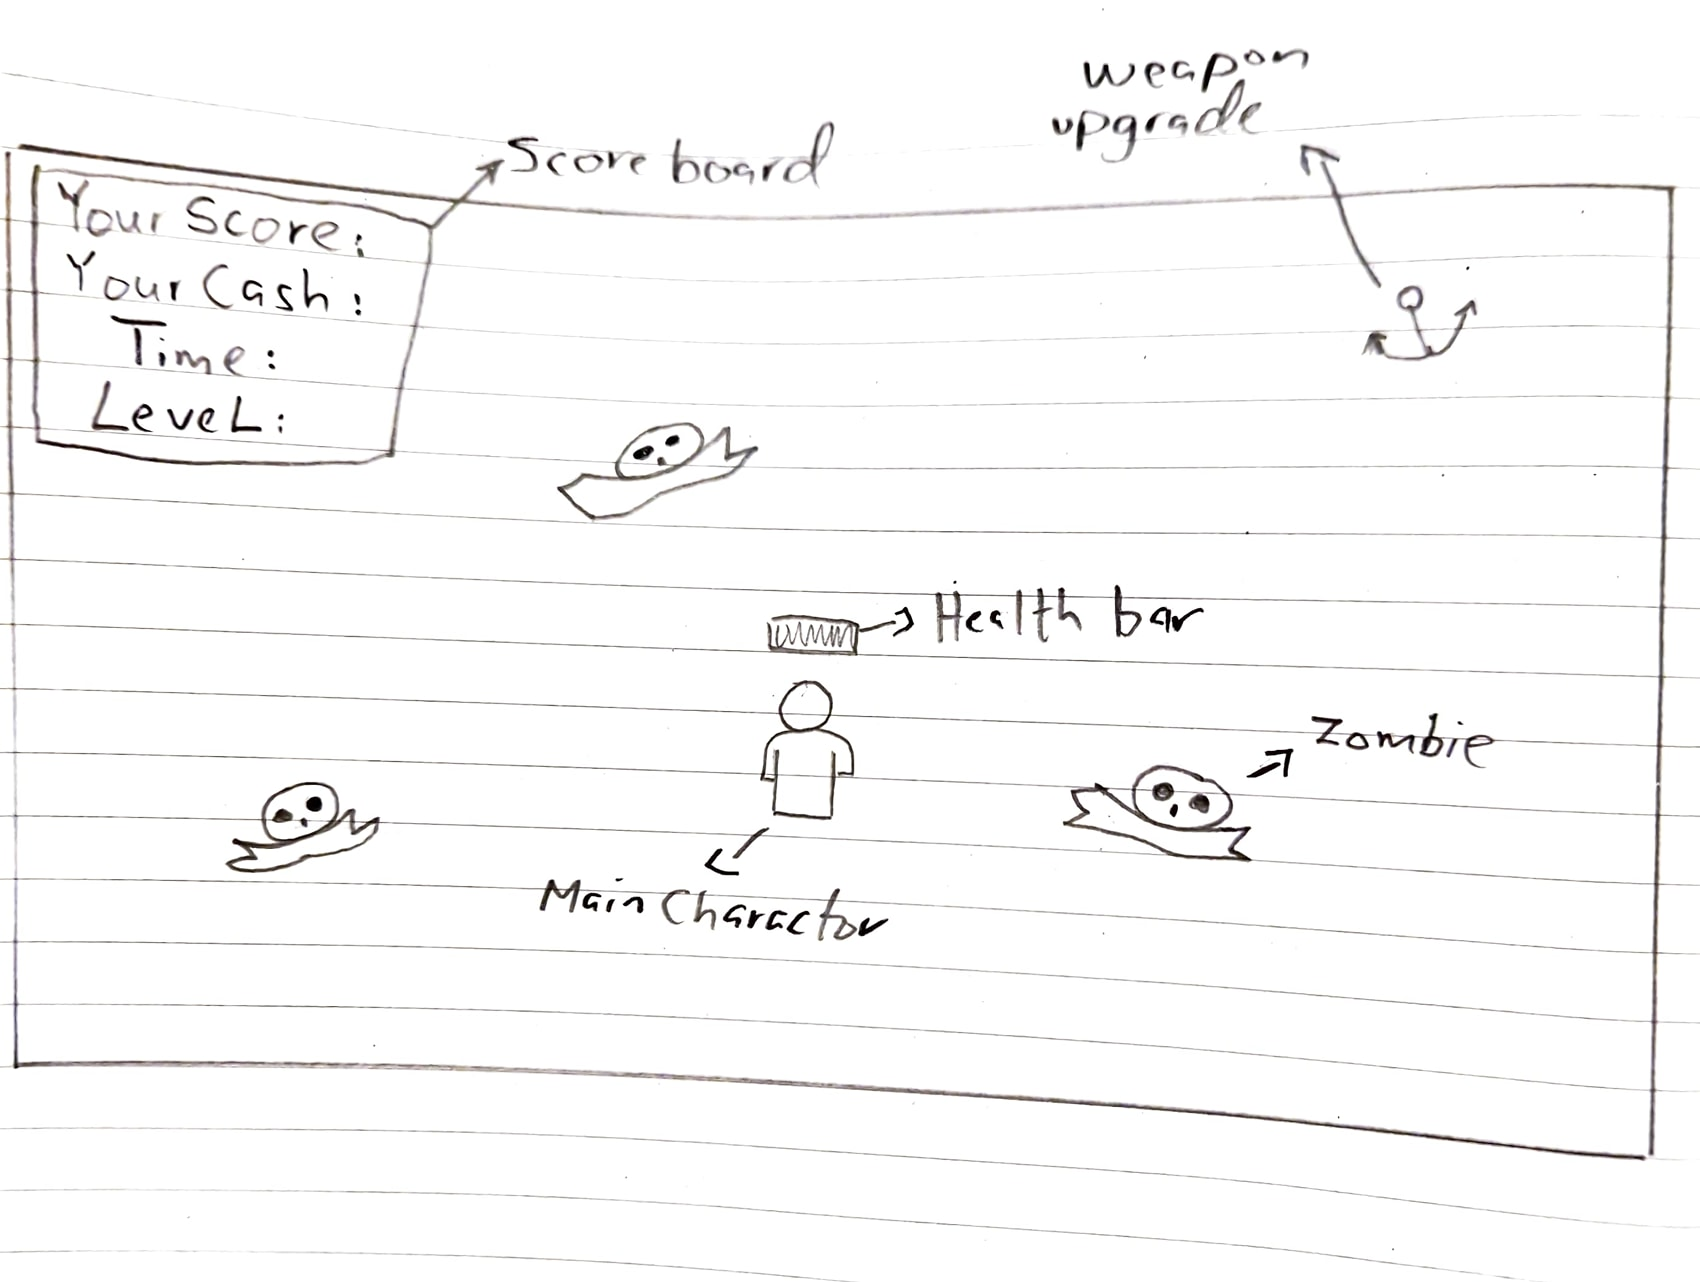 weapon
upgrade
Score board
Your Score:
Your Cash:
Time:
LeveL:
Health bar
Zombie
Main Charactor